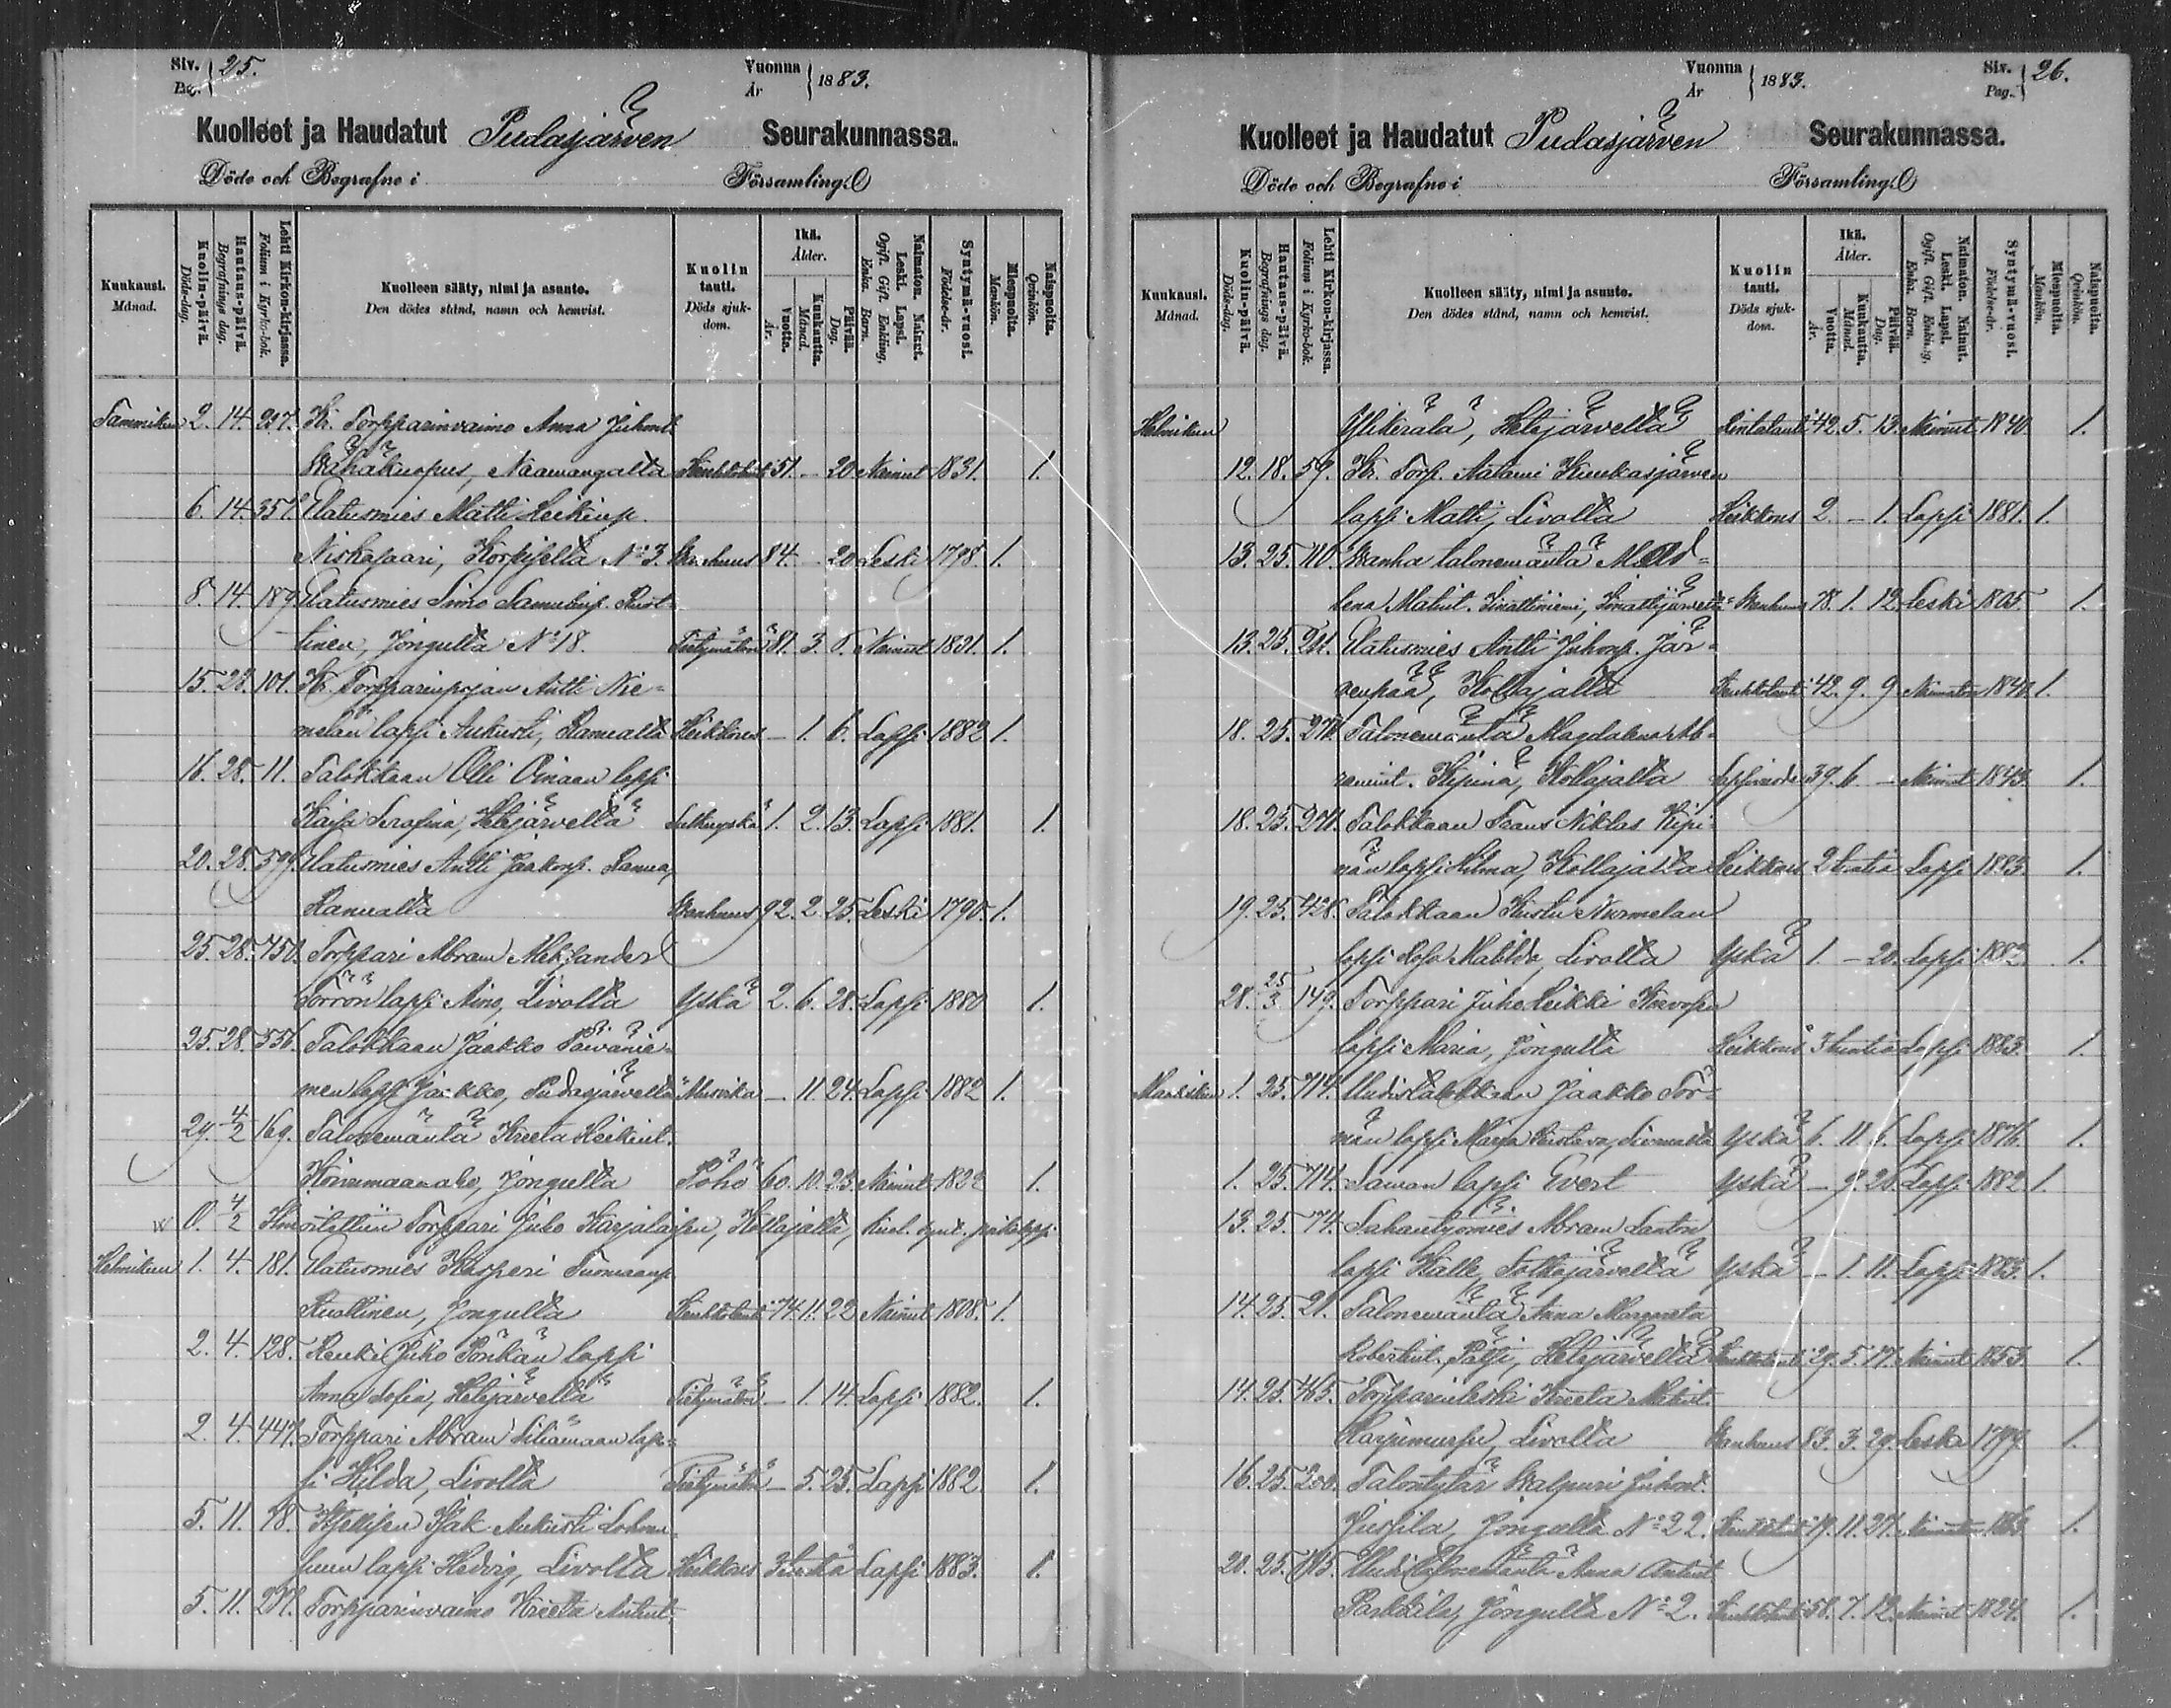 Siv. 25.
Pag.
Vuonna 1883.
År
Kuolleet ja Haudatut Pudasjärven Seurakunnassa.
Döde och Begrafne i Församling.
Kuukausi. Månad.
Kuolin-päivä. Döds-dag.
Hautaus-päivä. Begrafnings dag.
Lehti Kirkon-kirjassa. Folium i Kyrko-bok.
Kuolleen sääty, nimi ja asunto. Den dödes stånd, namn och hemvist.
Kuolin tauti. Döds sjukdom.
Ikä. Ålder.
Vuotta. År.
Kuukautta. Månad.
Päivää. Dag.
Naimaton. Nainut. Leski. Lapsi. Ogift. Gift. Enkling. Enka. Barn.
Syntymä-vuosi. Födelse-år.
Miespuolta. Mankön.
Naispuolta. Qvinkön.
Tammikuu 2. 14. 297. Kr. Torpparinvaimo Anna Juhont.
Wähäkuopus, Naamangalta Keuhkotauti 51. - 20 Nainut 1831. 1.
6. 14. 357. Elatusmies Matti Heikinp.
Niskasaari, Korpisella No 3. Wanhuus 84. - 20 Leski 1798. 1.
8. 14. 189. Elatusmies Simo Samulinp. Ruot-
tinen, Jongulta No 18. Tietymätön 81. 3. 8. Nainut 1831. 1.
15. 28. 101. Kr. Torpparinpojan Antti Nie-
melän lapsi Aukusti, Ranualta Heikkous - 1. 6. Lapsi 1882 1.
16. 28. 11. Talokkaan Olli Oinaan lapsi
Kaisa Serafina, Hetejärveltä 1. 2. 13. Lapsi 1881. 1.
20. 28. 599. Elatusmies Antti Jaakonp. Ranua,
Ranualta Wanhuus 92. 2. 25. Leski 1790. 1.
25. 28. 450. Torppari Abram Aleksander
Törrön lapsi Aino, Livolta Yskä 2. 6. 28. Lapsi 1880 1.
25. 28. 556. Talokkaan Jaakko Päivänie-
men lapsi Jaakko, Pudasjärveltä - 11. 24. Lapsi 1882 1.
29. 4/2 169. Talonemäntä Kreeta Heikint.
Koivumaanaho, Jongulta Pöhö 60. 10. 23. Nainut 1822 1.
0. 4/2 Ilmoitettiin Torppari Juho Karjalaisen, Kollajalta, kuol. synt. poikalapsi
Helmikuu 1. 4. 181. Elatusmies Kasperi Tuomaanp.
Ruottinen, Jongulta Keuhkotauti 74. 11. 22 Nainut 1808. 1.
2. 4. 128. Renki Juho Pönkän lapsi
Anna Sofia, Hetejärveltä Tietymätön - 1. 14. Lapsi 1882. 1.
2. 4. 447. Torppari Abram Siliämaan lap-
si Hilda, Livolta Tietymätön - 5. 25. Lapsi 1882. 1.
5. 11. 78. Itsellisen Isak Aukusti
lapsi Hedvig, Livolta Heikkous Lapsi 1883. 1.
5. 11. 297. Torpparinvaimo Kreeta Antint.
Vuonna 1883.
År
Siv. 26.
Pag.
Kuolleet ja Haudatut Pudasjärven Seurakunnassa.
Döde och Begrafne i Församling.
Kuukausi. Månad.
Kuolin-päivä. Döds-dag.
Hautaus-päivä. Begrafnings dag.
Lehti Kirkon-kirjassa. Folium i Kyrko-bok.
Kuolleen sääty, nimi ja asunto. Den dödes stånd, namn och hemvist.
Kuolin tauti. Döds sjukdom.
Ikä. Ålder.
Vuotta. År.
Kuukautta. Månad.
Päivää. Dag.
Naimaton. Nainut. Leski. Lapsi. Ogift. Gift. Enkling. Enka. Barn.
Syntymä-vuosi. Födelse-år.
Miespuolta. Mankön.
Naispuolta. Qvinkön.
Helmikuu Yliherälä, Hetejärveltä Rintatauti 42. 5. 13. Nainut 1840. 1.
12. 18. 59. Kr. Torp. Aatami Kuukasjärven
lapsi Matti, Livolta Heikkous 2. - 1. Lapsi 1881. 1.
13. 25. 110. Wanha talonemäntä Mad-
lena Matint. Iinattiniemi, Iinattijärveltä Wanhuus 78. 1. 12 Leski 1805. 1.
13. 25. 291. Elatusmies Antti Juhonp. Jär-
venpää, Kollajalta Keuhkotauti 42. 9. 9 Naimaton 1840. 1.
18. 25. 271. Talonemäntä Magdalena Ab-
ramint. Kipinä, Kollajalta Lapsivuode 39. 6. - Nainut 1843. 1.
18. 25. 271. Talokkaan Frans Niklas Kipi-
nän lapsi Hilma, Kollajalta Heikkous 2 tuntia Lapsi 1883. 1.
19. 25. 428. Talokkaan Kustu Nurmelan
lapsi Matilda, Livolta Yskä 1. - 20. Lapsi 1882. 1.
28. 25/3 149. Torppari Juho Heikki
lapsi Maria, Jongulta Heikkous 3 tuntia Lapsi 1883. 1.
Maaliskuu 1. 25. 714. Uudistalokkaan Jaakko Tör-
män lapsi Marja Kustava, Yskä 6. 11. 6. Lapsi 1876. 1.
1. 25. 714. Saman lapsi Evert Yskä - 9. 20. Lapsi 1882 1.
13. 25. 74. Sahantyömies Abram
lapsi Kalle, Sotkajärveltä Yskä - 1. 11. Lapsi 1883. 1.
14. 25. 21. Talonemäntä Anna Margareta
Robertint. Pätsi, Hetejärveltä Keuhkotauti 29. 5. 17. Nainut 1853. 1.
14. 25. 465. Torpparinleski Kreeta Matint.
Livolta Wanhuus 83. 3. 29. Leski 1799. 1.
16. 25. 200. Talontytär Walpuri Juhont.
Jussila, Jongulta No 22. Keuhkotauti 19. 11. 27. Naimaton 1863. 1.
20. 25. Uudistalonemäntä Anna Antint.
Parkkila, Jongulta No 2. Keuhkotauti 58. 7. 12. Nainut 1824. 1.